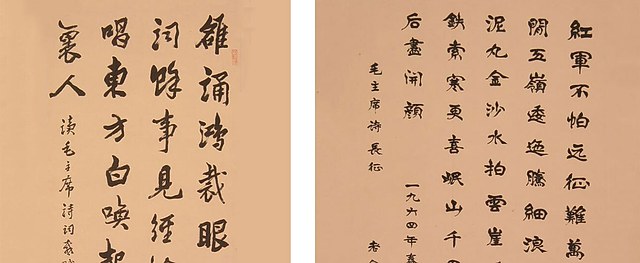 雒誦鴻裁眼
詞餘事見經
唱東方白喚起
裏人
读毛主席詩词
紅軍不怕远征難萬
閒五嶺逶迤騰細浪
泥丸金沙水拍雲崖
鉄索寒更喜岷山千
后盡開顏
毛主席詩長征
一九六四年春
老